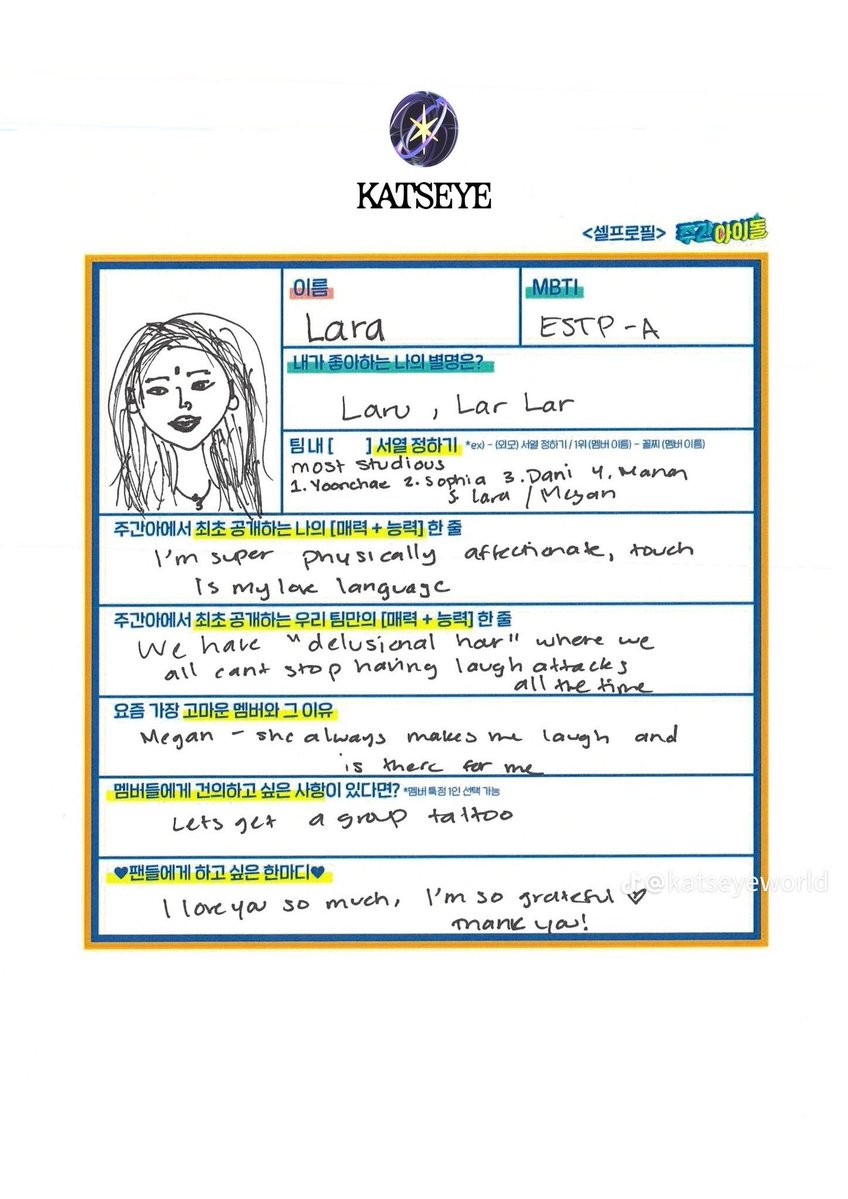 KATSEYE
<셀프로필> 주간아이돌
이름
Lara
MBTI
ESTP-A
내가 좋아하는 나의 별명은?
Laru, Lar Lar
팀 내 [ ] 서열 정하기 *ex) - (외모) 서열 정하기 / 1위 (멤버 이름) - 꼴찌 (멤버 이름)
most studious
1. Yoonchae 2. Sophia 3. Dani 4. Manon
5. Lara / Megan
주간아에서 최초 공개하는 나의 [매력 + 능력] 한 줄
I'm super physically affectionate, touch
is my love language
주간아에서 최초 공개하는 우리 팀만의 [매력 + 능력]한 줄
We have "delusional hour" where we
all cant stop having laugh attacks
all the time
요즘 가장 고마운 멤버와 그 이유
Megan - she always makes me laugh and
is there for me
멤버들에게 건의하고 싶은 사항이 있다면? *멤버 특정 1인 선택 가능
Lets get a group tattoo
♥팬들에게 하고 싶은 한마디♥
@katseyeworld
I love you so much, I'm so grateful ♡
Thank you!